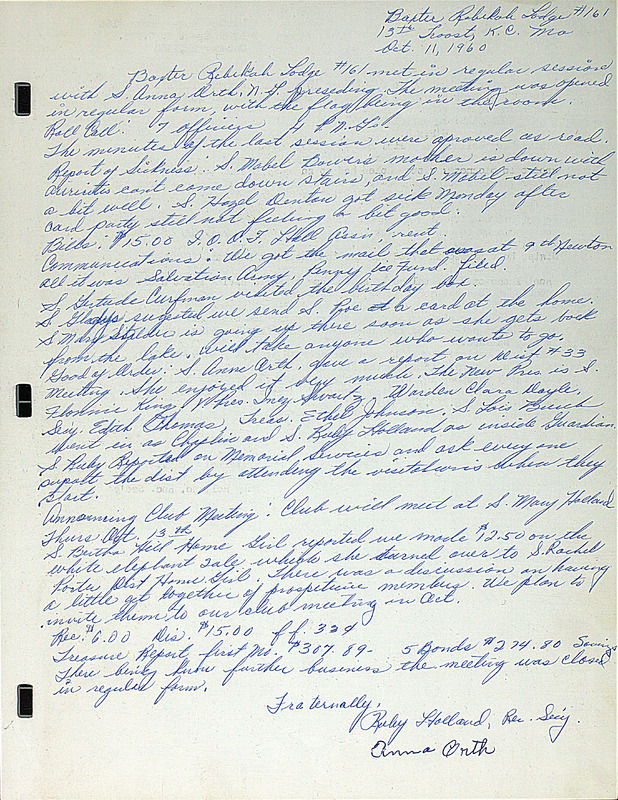 Baxter Rebekah Lodge #161
13th Troost, K.C. Mo
Oct. 11, 1960
Baxter Rebekah Lodge #161 met in regular session
with S. Anna Orth, N.G. preseding. The meeting was opened
in regular form with the flag being in the room.
Roll Call: 7 officers 4 P.N.Gs.
The minutes of the last session were aproved as read.
Report of Sickness: S. Mabel Bowers mother is down with
cant come down stairs and S. Mabel still not
a bit well. S. Hazel Denton got sick Monday after
card party still not feeling a bit good.
Bills: $15.00 I.O.O.F. Hall Assn. rent.
Communications: We got the mail that was at 9th Newton
all it was Salvation Army, Penny Ice Fund. filed.
S. Gertrude Curfman visited the birthday box.
S. Gladys sugested we send S. Roe a card at the home.
S Mary is going up there soon as she gets back
from the lake, will take anyone who wants to go.
Good of Order: S. Anna Orth, gave a report on Dist #33
Meeting. She enjoyed it very much. The New Pres is S.
Florence King, V Pres. Inez Swartz Warden Clara Doyle,
Secy. Edith Thomas, Treas. Ethel Johnson, S Lois Burch
went in as Chaplin and S. Ruby Holland as inside Guardian.
S Ruby Reported on Memorial Services and ask every one
suport the dist by attending the visitations when they
start.
Announcing Club Meeting: Club will meet at S. Mary Holland
Thurs Oct. 13th
S. Bertha Home Girl reported we made $12.50 on the
white elephant sale which she turned over to S. Rachel
Porter Dist Home Girl. There was a discussion on having
a little get together of prospective members. We plan to
invite them to our club meeting in Oct.
Rec. $6.00 Dis. $15.00 f f. 32¢
Treasure Report, first Mo. $307.89- 5 Bonds $274.80 Savings
There being know further business the meeting was closed
in regular form.
Fraternally,
Ruby Holland, Rec. Secy.
Anna Orth